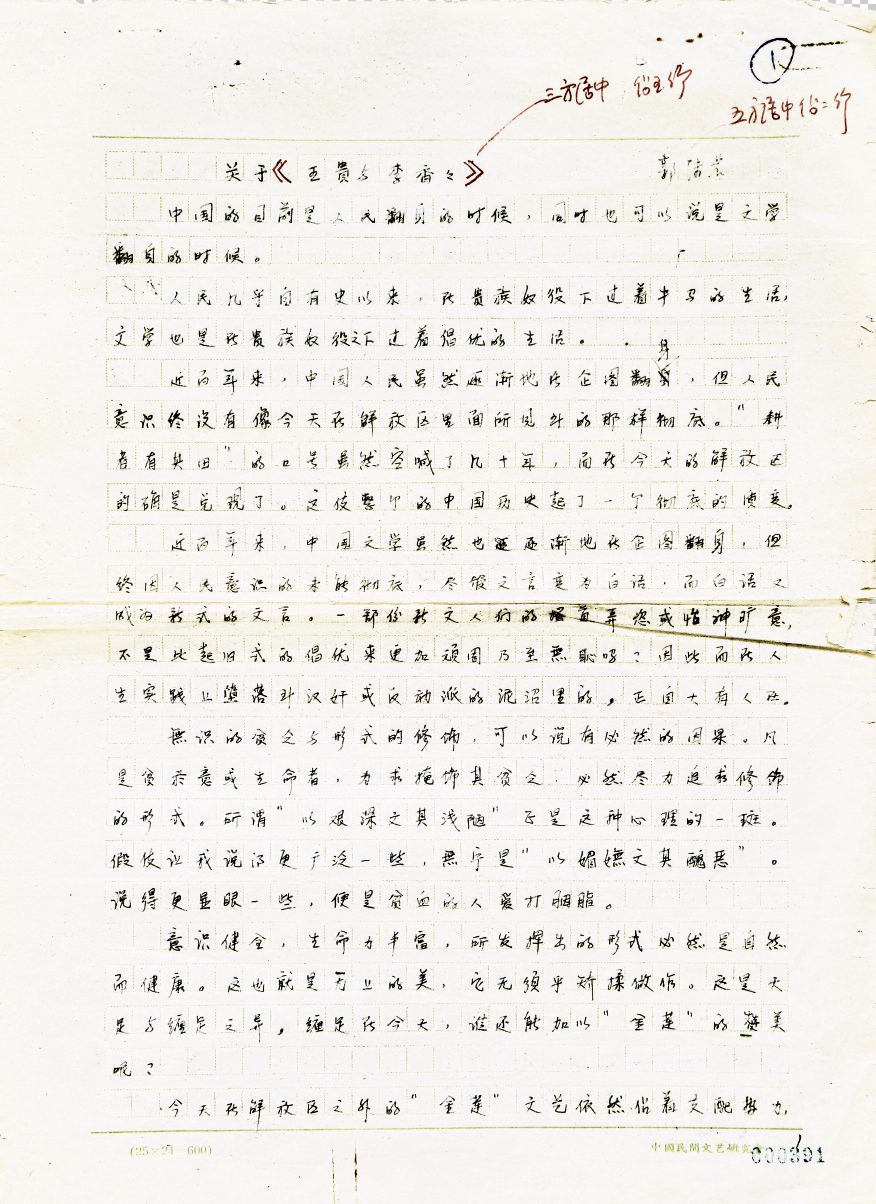 ①
三方居中 佔五行
五方居中佔二行
关于《王贵与李香香》 郭沫若
中国的目前是人民翻身的时候，同时也可以说是文学
翻身的时候。
人民几乎自有史以来，在贵族奴役下过着牛马的生活，
文学也是在贵族奴役之下过着倡优的生活。
近百年来，中国人民虽然逐渐地在企图翻身，但人民
意识终没有像今天在解放区里面所见到的那样彻底。"耕
者有其田"的口号虽然空喊了几十年，而在今天的解放区
的确是兑现了。这使整个的中国历史起了一个彻底的质变。
近百年来，中国文学虽然也逐渐地在企图翻身，但
终因人民意识的未能彻底，尽管文言变为白话，而白话又
成为新式的文言。一部份新文人们的搔首弄姿或怡神旷意，
不是比起旧式的倡优来更加顽固乃至無恥吗？因此而在人
生实践上墮落到汉奸或反动派的泥沼里的，正自大有人在。
無识的贫乏与形式的修饰，可以说有必然的因果。凡
是贫于意或生命者，为求掩饰其贫乏 必然尽力追求修饰
的形式。所谓"以艰深文其浅陋"正是这种心理的一斑。
假使让我说得更广泛一些，無宁是"以媚嫵文其醜恶"。
说得更显眼一些，便是贫血的人爱打胭脂。
意识健全，生命力丰富，所发挥出的形式必然是自然
而健康。这也就是无上的美，它无须乎矫揉做作。这是天
足与缠足之异，缠足在今天，谁还能加以"金莲"的 美
呢？
今天在解放区之外的"金莲"文艺依然佔着支配势力，
(25×24=600)
中國民間文艺研究会
000391